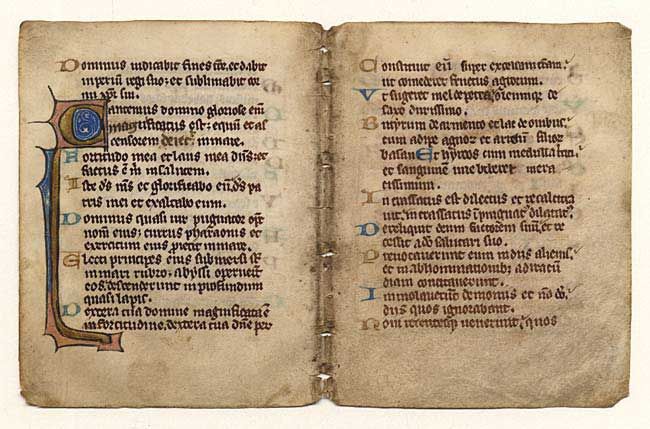 Dominus iudicabit fines terre: et dabit
imperium regi suo: et sublimabit cor
nu xpi sui.
Cantemus domino gloriose eni
magnificatus est: equu et as
censorem deiec in mare.
Fortitudo mea et laus mea dns: et
factus e m in salutem.
Iste ds ms et glorificabo eu: ds pa
tris mei et exaltabo eum.
Dominus quasi uir pugnator
nom eius: currus pharaonis et
exercitum eius in mare.
Electi principes eius submersi st
in mari rubro: abyssi operuert
eos. descenderunt in profundum
quasi lapis.
Dextera tua domine magnificata e
in fortitudine: dextera tua dne per
Constituit eu super excelsam tram:
ut comederet fructus agrorum.
Ut sugeret mel de petra: oleumque de
saxo durissimo.
Butyrum de armento et lac de ouibus:
cum adipe agnor et arietum filior
basan. Et hyrcos cum medulla tritici:
et sanguinem uue biberet mera
cissimum.
Incrassatus est dilectus et recalcitra
uit: incrassatus inpinguat dilatat.
Dereliquit deum factorem suum: et re
cessit a do salutari suo.
Prouocauerunt eum in diis alienis:
et in abhominationib ad iracun
diam concitauerunt.
Immolauerunt demoniis et no do:
diis quos ignorabant.
Noui recentesque uenerunt: quos